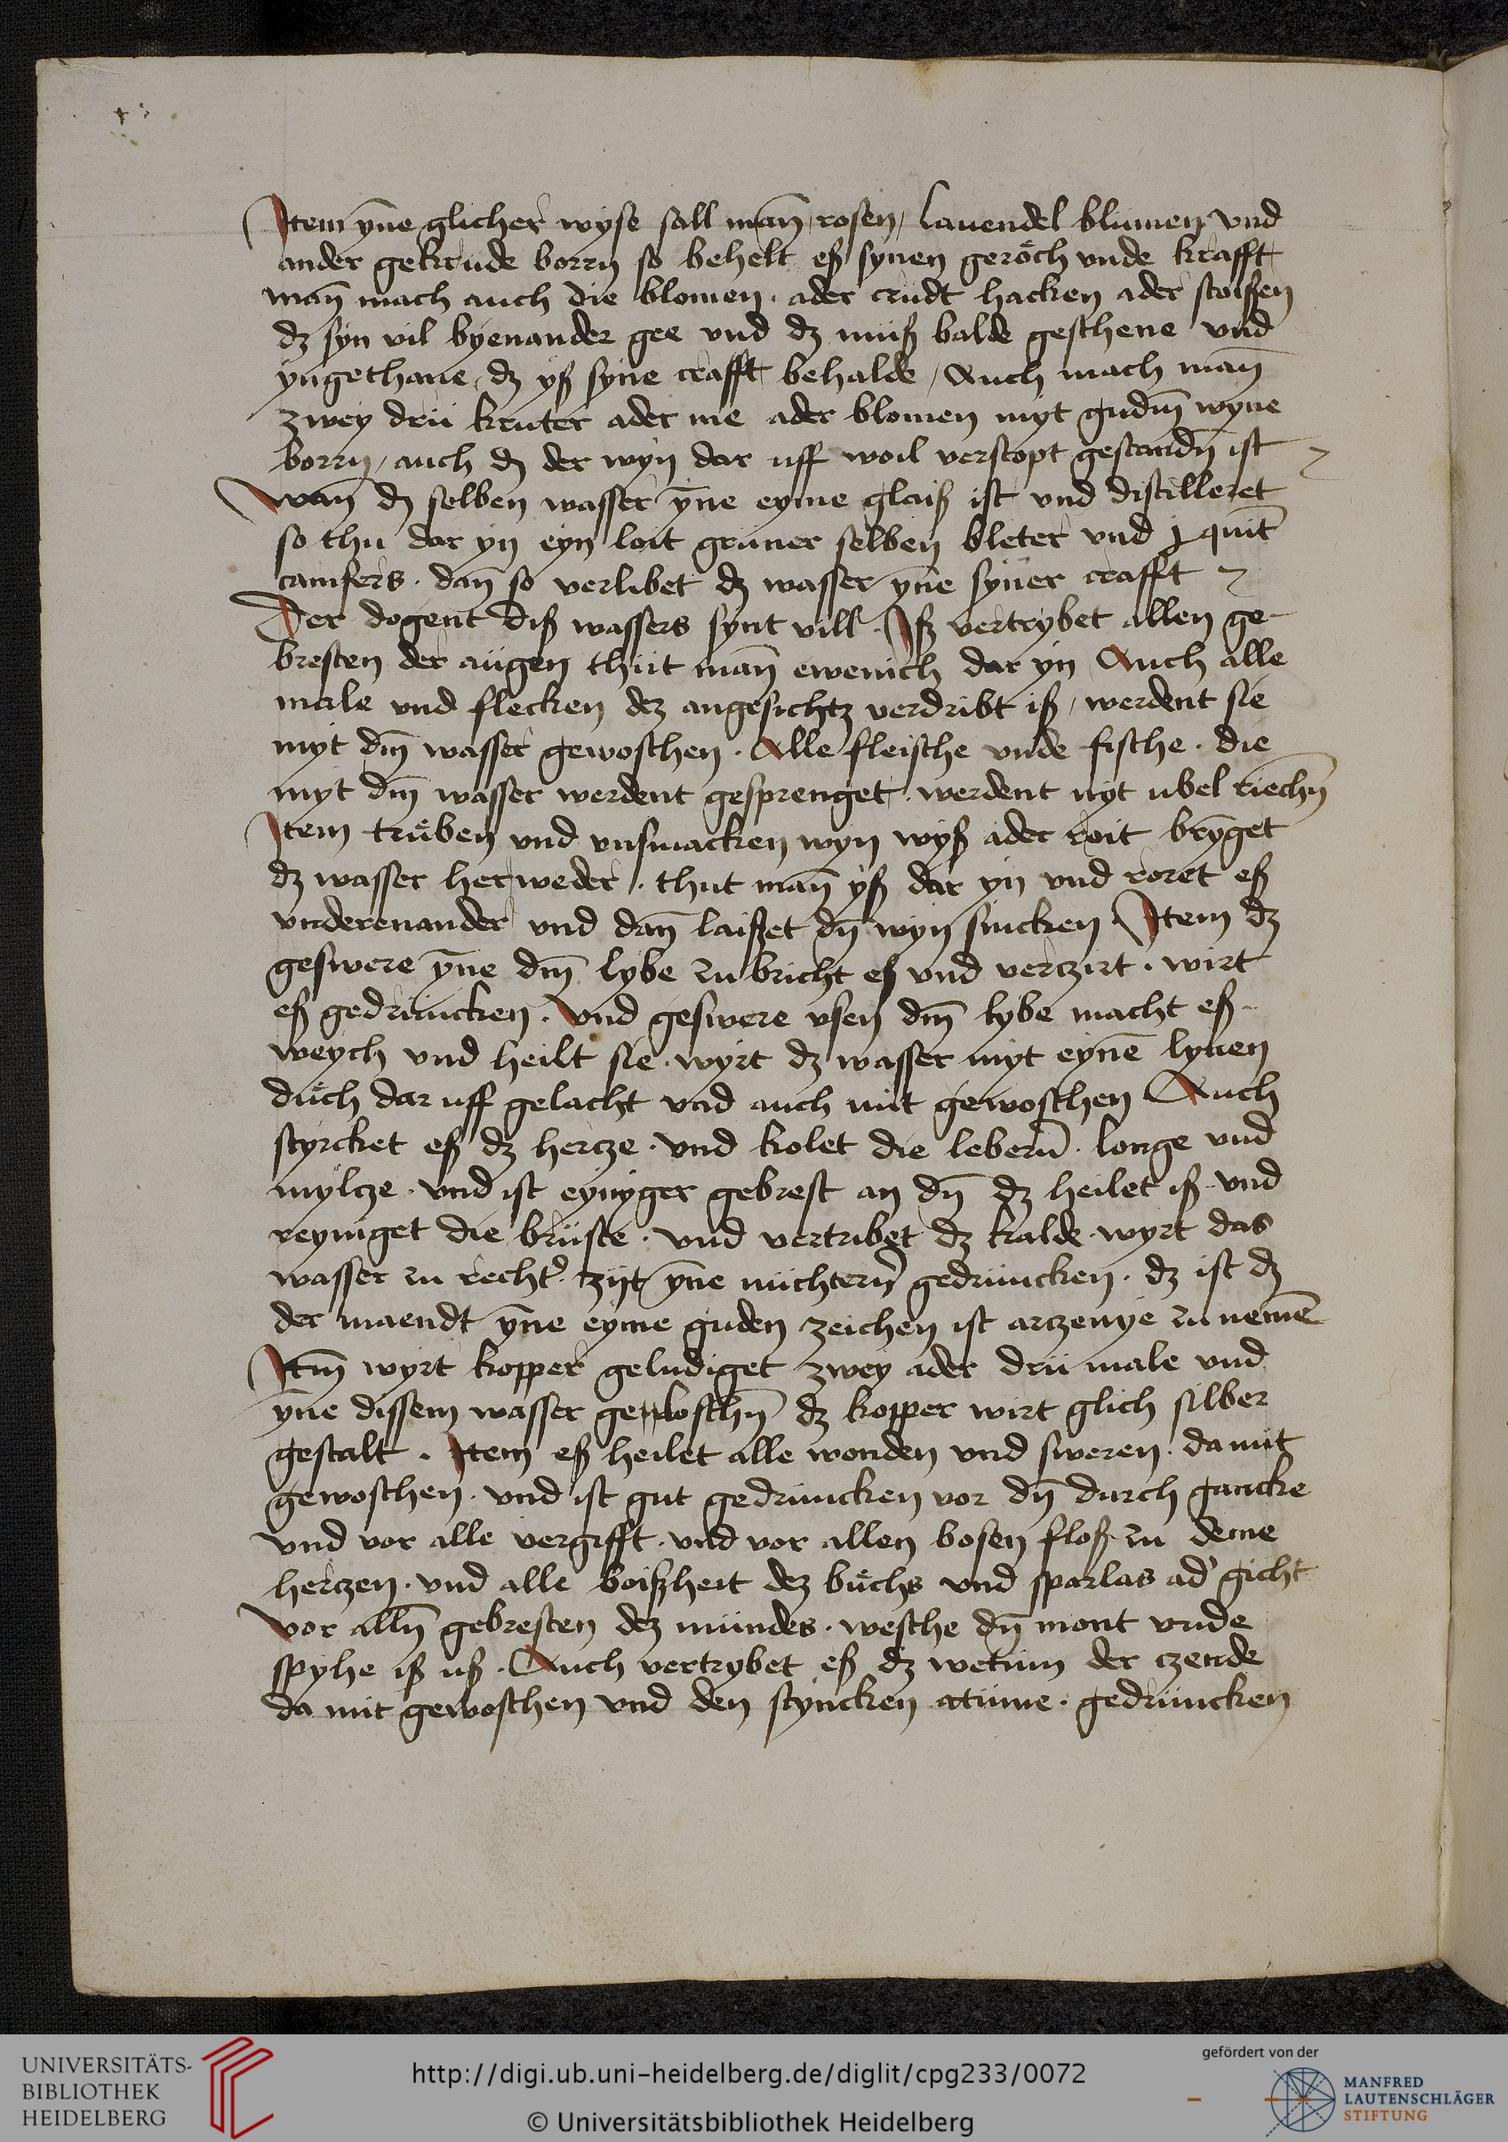 Item yn̄e glicher wyse sall man̄ rosen / lauendel blumen vnd
ander gekrude borrn so behelt eß synen geröch vnde krafft
man̄ mach auch die blomen · ader crudt hacken ader stoißen
dz syn vil byenander gee vnd dz muß balde geschene vnd
yngethane / dz yß syne crafft behalde / Auch mach man̄
zwey drü kruter ader me ader blomen myt gudm̄ wyne
borrn / auch dz der wyn dar uff woil verstopt gestandn̄ ist
wan̄ dz selben wasser yn̄e eyme glaiß ist vnd distilleret
so thu dar yn eyn loit gruner selben bleter vnd j quit̄
camfers · dan̄ so verlibet dz wasser yn̄e syner crafft
Der dogent diß wassers synt vill · Iß vertrybet allen ge-
bresten der augen thut man̄ ewenich dar yn Auch alle
male vnd flecken dez angesichtz verdribt iß / werdent sie
myt dm̄ wasser gewoschen · Alle fleische vnde fische · die
myt dm̄ wasser werdent gesprenget · werdent nyt ubel riechn̄
Item truben vnd vnsmacken wyn wyß ader roit brȳget
dz wasser herweder · thut man̄ yß dar yn vnd roret eß
vnderenander vnd dan̄ laißet dn̄ wyn sincken Item dz
geswere yn̄e dm̄ lybe zu bricht eß vnd verczirt · wirt
eß gedruncken · Vnd geswere vsen dm̄ lybe macht eß
weych vnd heilt sie · wyrt dz wasser myt eynē lynen
duch dar uff gelacht vnd auch mit gewoschen Auch
styrcket eß dz hercze · vnd kolet die lebern̄ · longe vnd
myltze · vnd ist eyniger gebrest an dn̄ dz heilet iß · vnd
reyniget die bruste · vnd vertribet dz kalde · wyrt das
wasser zu recht' · zijt yn̄e nüchtern̄ gedruncken · dz ist dz
der maendt yn̄e eyme guden zeichen ist arczenye zu nemē
Itm̄ wyrt kopper geludiget zwey ader drü male vnd
yn̄e dissem wasser geloschn̄ dz kopper wirt glich silber
gestalt · Item eß heilet alle wonden vnd sweren · da mit
gewoschen · vnd ist gut gedruncken vor dn̄ durch gancke
vnd vor alle vergifft · vnd vor allen bosen floß zu deme
herczen · vnd alle boißheit dez buchs vnd sparlas ad' gicht
vor alln̄ gebresten dez mundes · wesche dn̄ mont vnde
spyhe iß uß · Auch vertrybet eß dz wetum der czende
da mit gewoschen vnd den styncken atume · gedruncken
UNIVERSITÄTS-
BIBLIOTHEK
HEIDELBERG
http://digi.ub.uni-heidelberg.de/diglit/cpg233/0072
© Universitätsbibliothek Heidelberg
gefördert von der
MANFRED
LAUTENSCHLÄGER
STIFTUNG